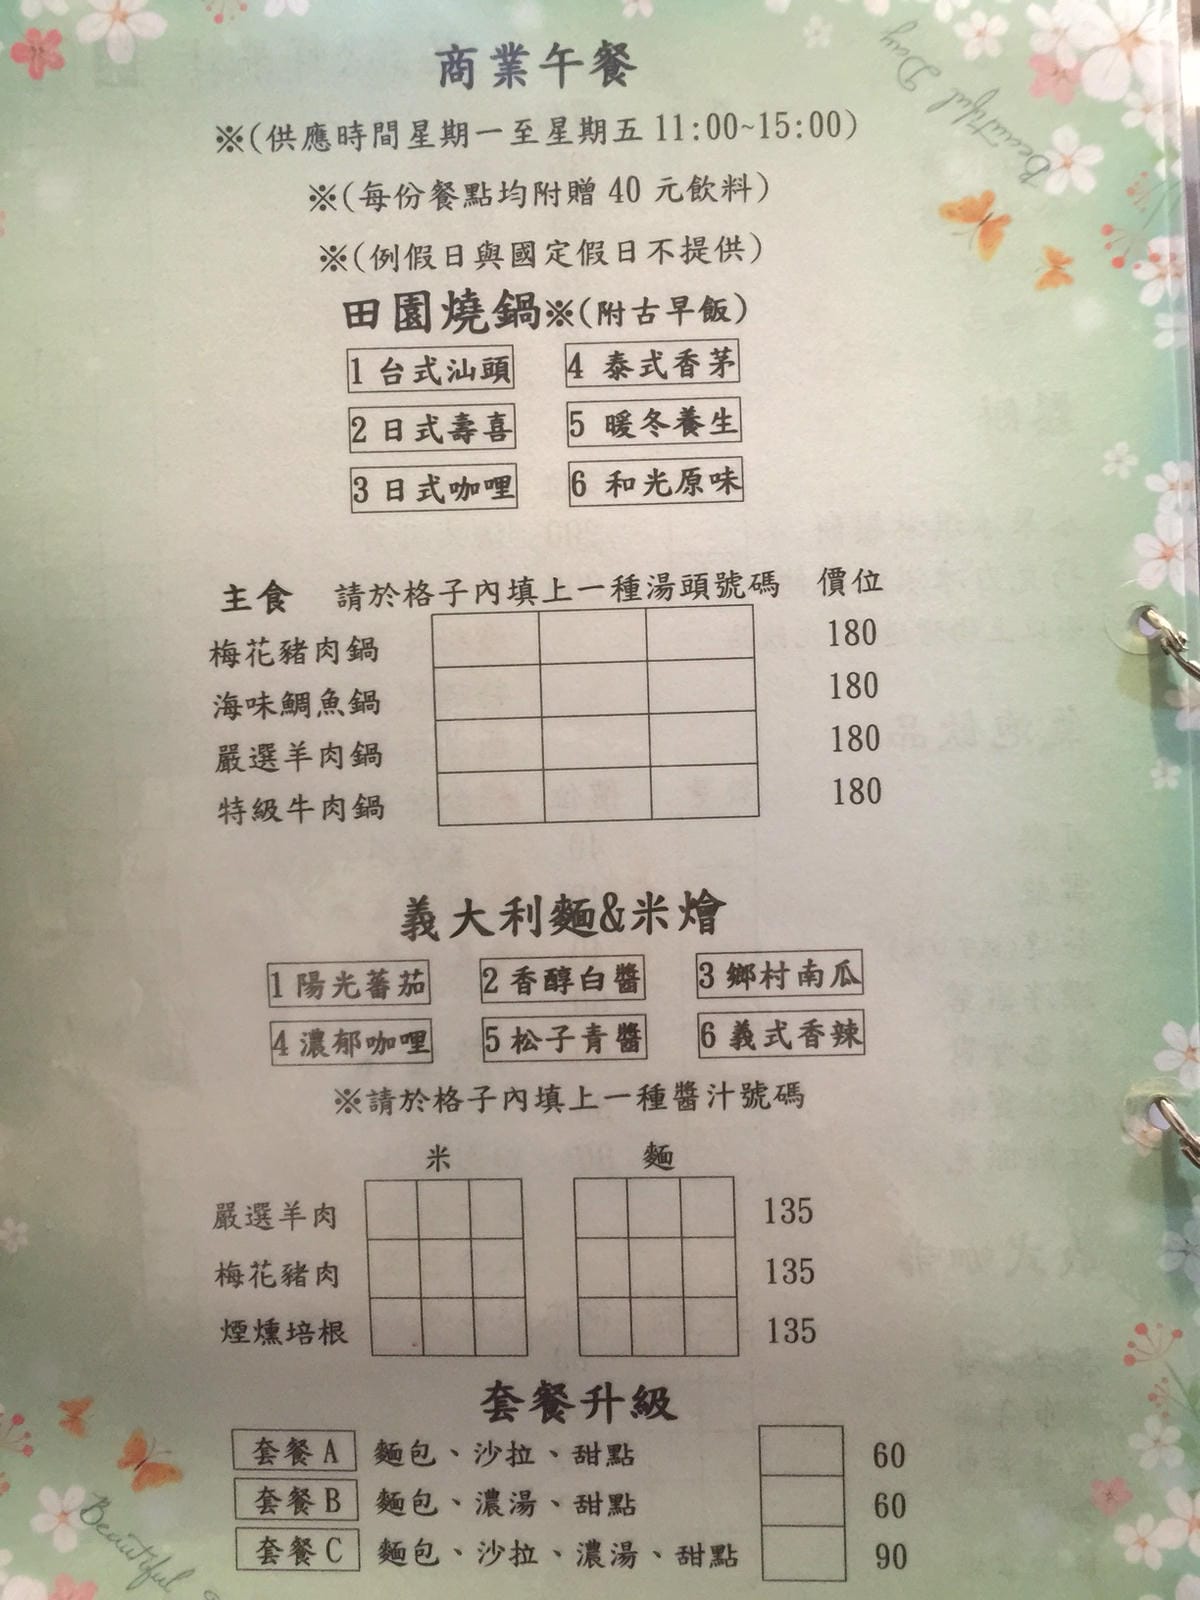 商業午餐
※(供應時間星期一至星期五 11:00~15:00)
※(每份餐點均附贈 40 元飲料)
※(例假日與國定假日不提供)
田園燒鍋※(附古早飯)
1 台式汕頭 4 泰式香茅
2 日式壽喜 5 暖冬養生
3 日式咖哩 6 和光原味
主食 請於格子內填上一種湯頭號碼 價位
梅花豬肉鍋 180
海味鯛魚鍋 180
嚴選羊肉鍋 180
特級牛肉鍋 180
義大利麵&米燴
1 陽光蕃茄 2 香醇白醬 3 鄉村南瓜
4 濃郁咖哩 5 松子青醬 6 義式香辣
※請於格子內填上一種醬汁號碼
米 麵
嚴選羊肉 135
梅花豬肉 135
煙燻培根 135
套餐升級
套餐 A 麵包、沙拉、甜點 60
套餐 B 麵包、濃湯、甜點 60
套餐 C 麵包、沙拉、濃湯、甜點 90
Beautiful Day
Beautiful